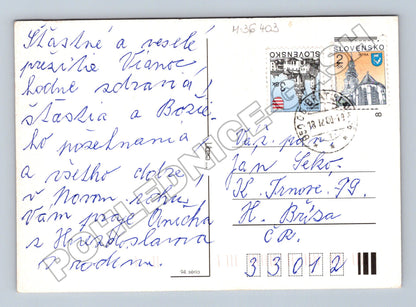 H-36403
Šťastné a veselé
prežitie Vianoc
hodne zdravia
šťastia a Božie-
ho požehnania
a všetko dobré
v Novom roku
Vám praje Anička
z Hviezdoslavova
s rodinou.
SLOVENSKO
SLOVENSKO
2
Váž. pán
Jan Seko,
K. Trnové 99.
H. Bříza
Č.R.
33012
8
POHLEDNICE-CASH